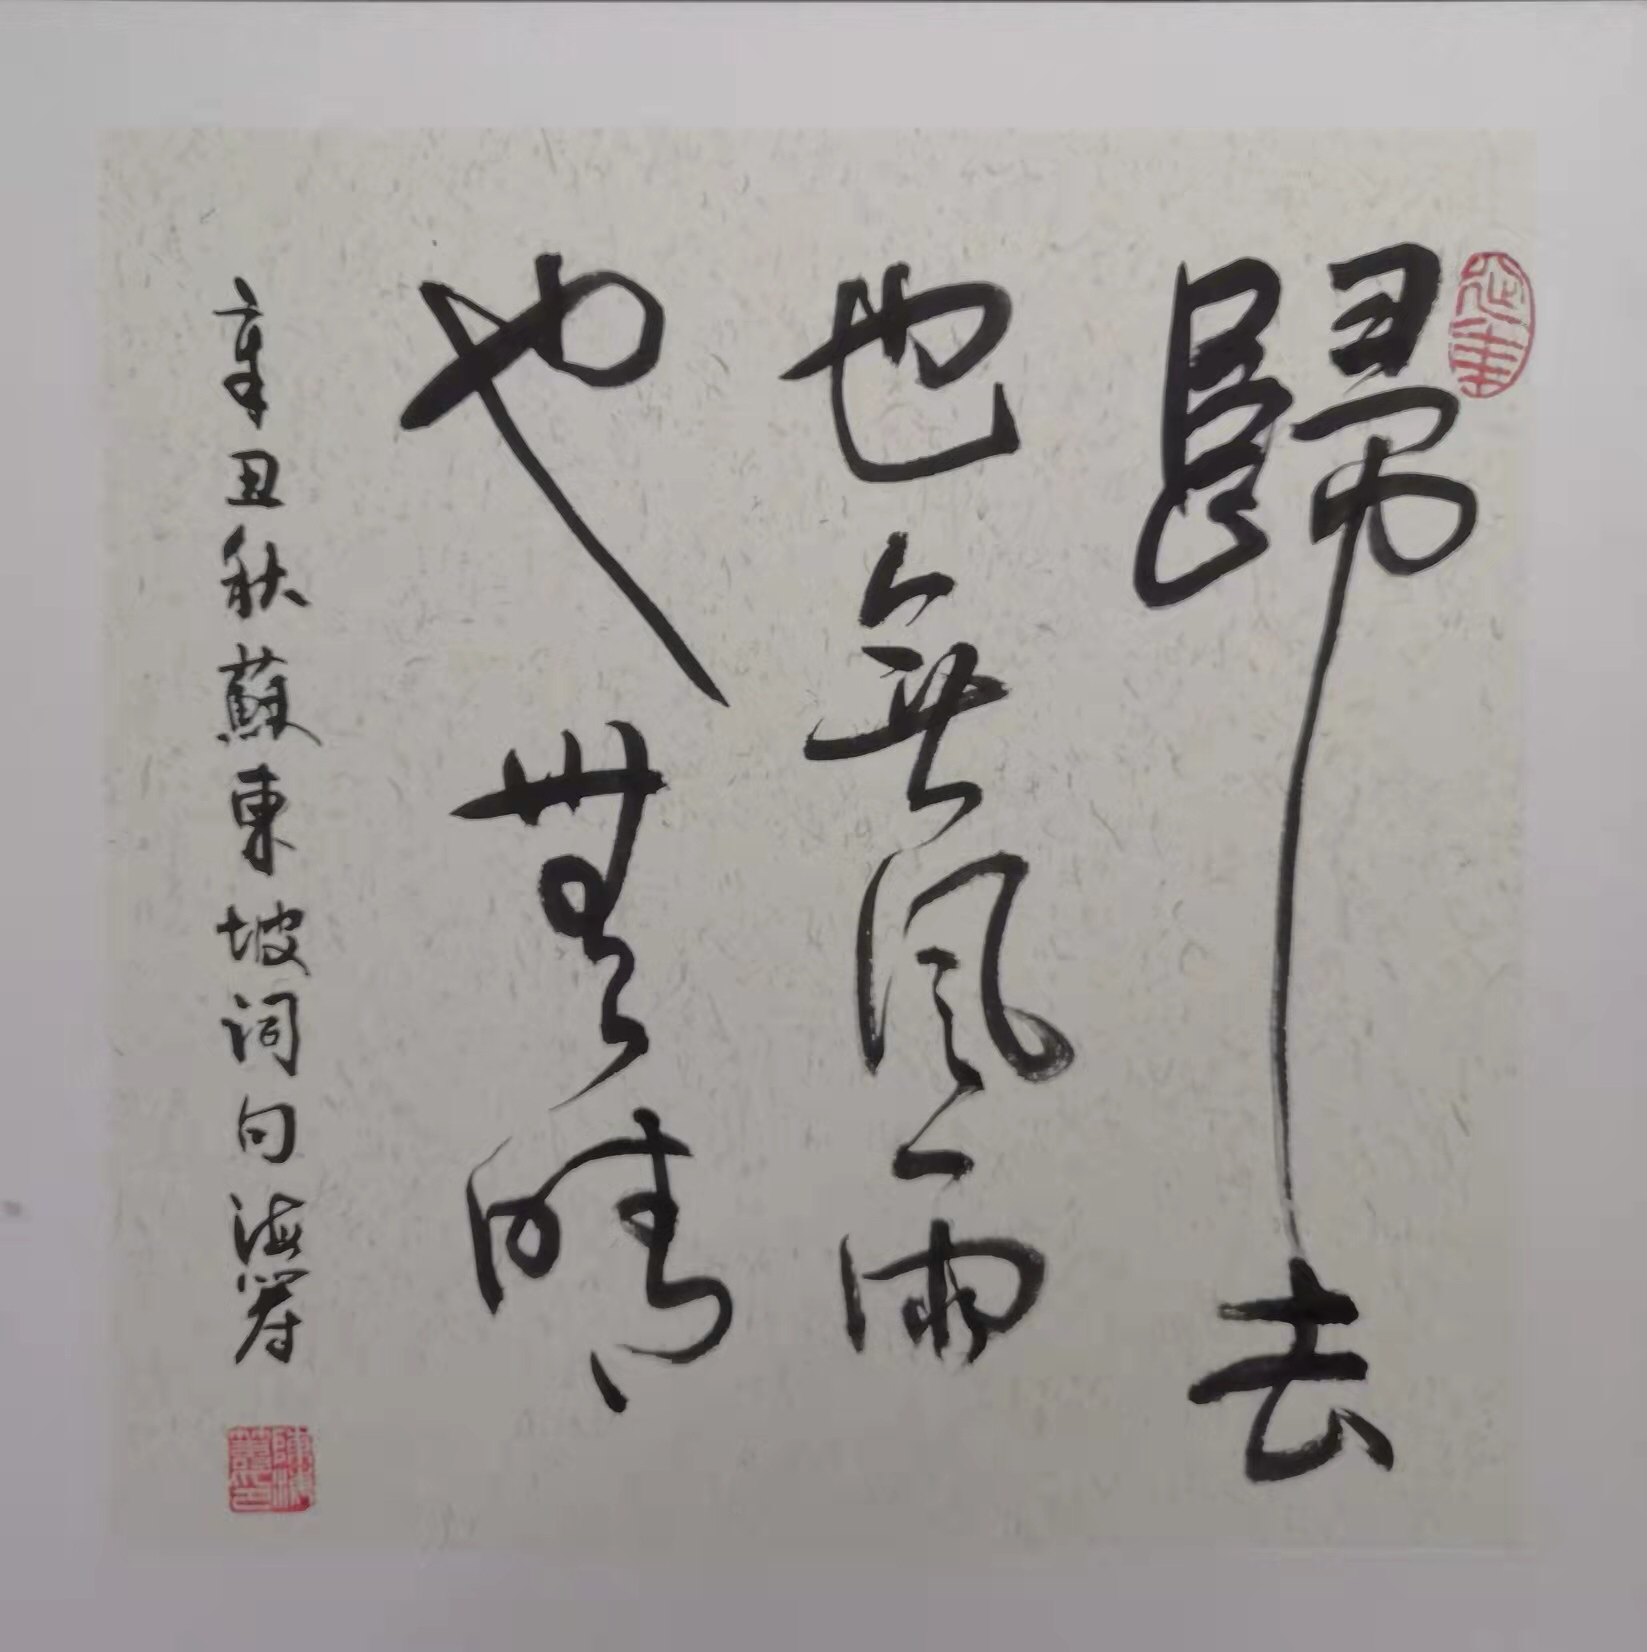 歸去
也無風雨
也無晴
辛丑秋蘇東坡詞句海